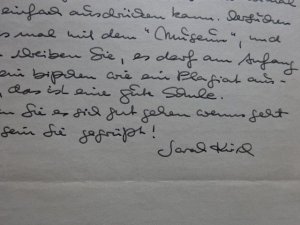 einfach ausdrücken kann.
mal mit dem "Museum", und
schreiben Sie, es darf am Anfang
ein bißchen wie ein Plagiat aus-
, das ist eine gute Schule.
Sie es sich gut gehen wenns geht
sein Sie gegrüßt!
Sarah Kirsch